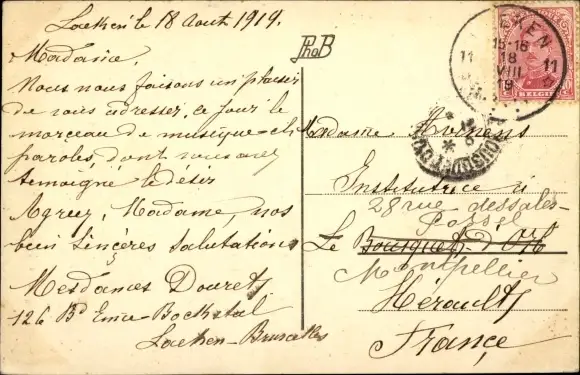 Laeken le 18 Août 1919.
Madame,
Nous nous faisons un plaisir
de vous adresser, ce jour le
morceau de musique et
paroles, dont vous avez
témoigné le désir
Agréez, Madame, nos
bien sincères salutations
Mesdames Douret
126 Bd Emile Bockstael
Laeken-Bruxelles
PhoB
LAEKEN
15-16
11 18 11
VIII
19
BELGIE
Madame
Institutrice à
28 rue
Le Bousquet d'Orb
Montpellier
Hérault
France